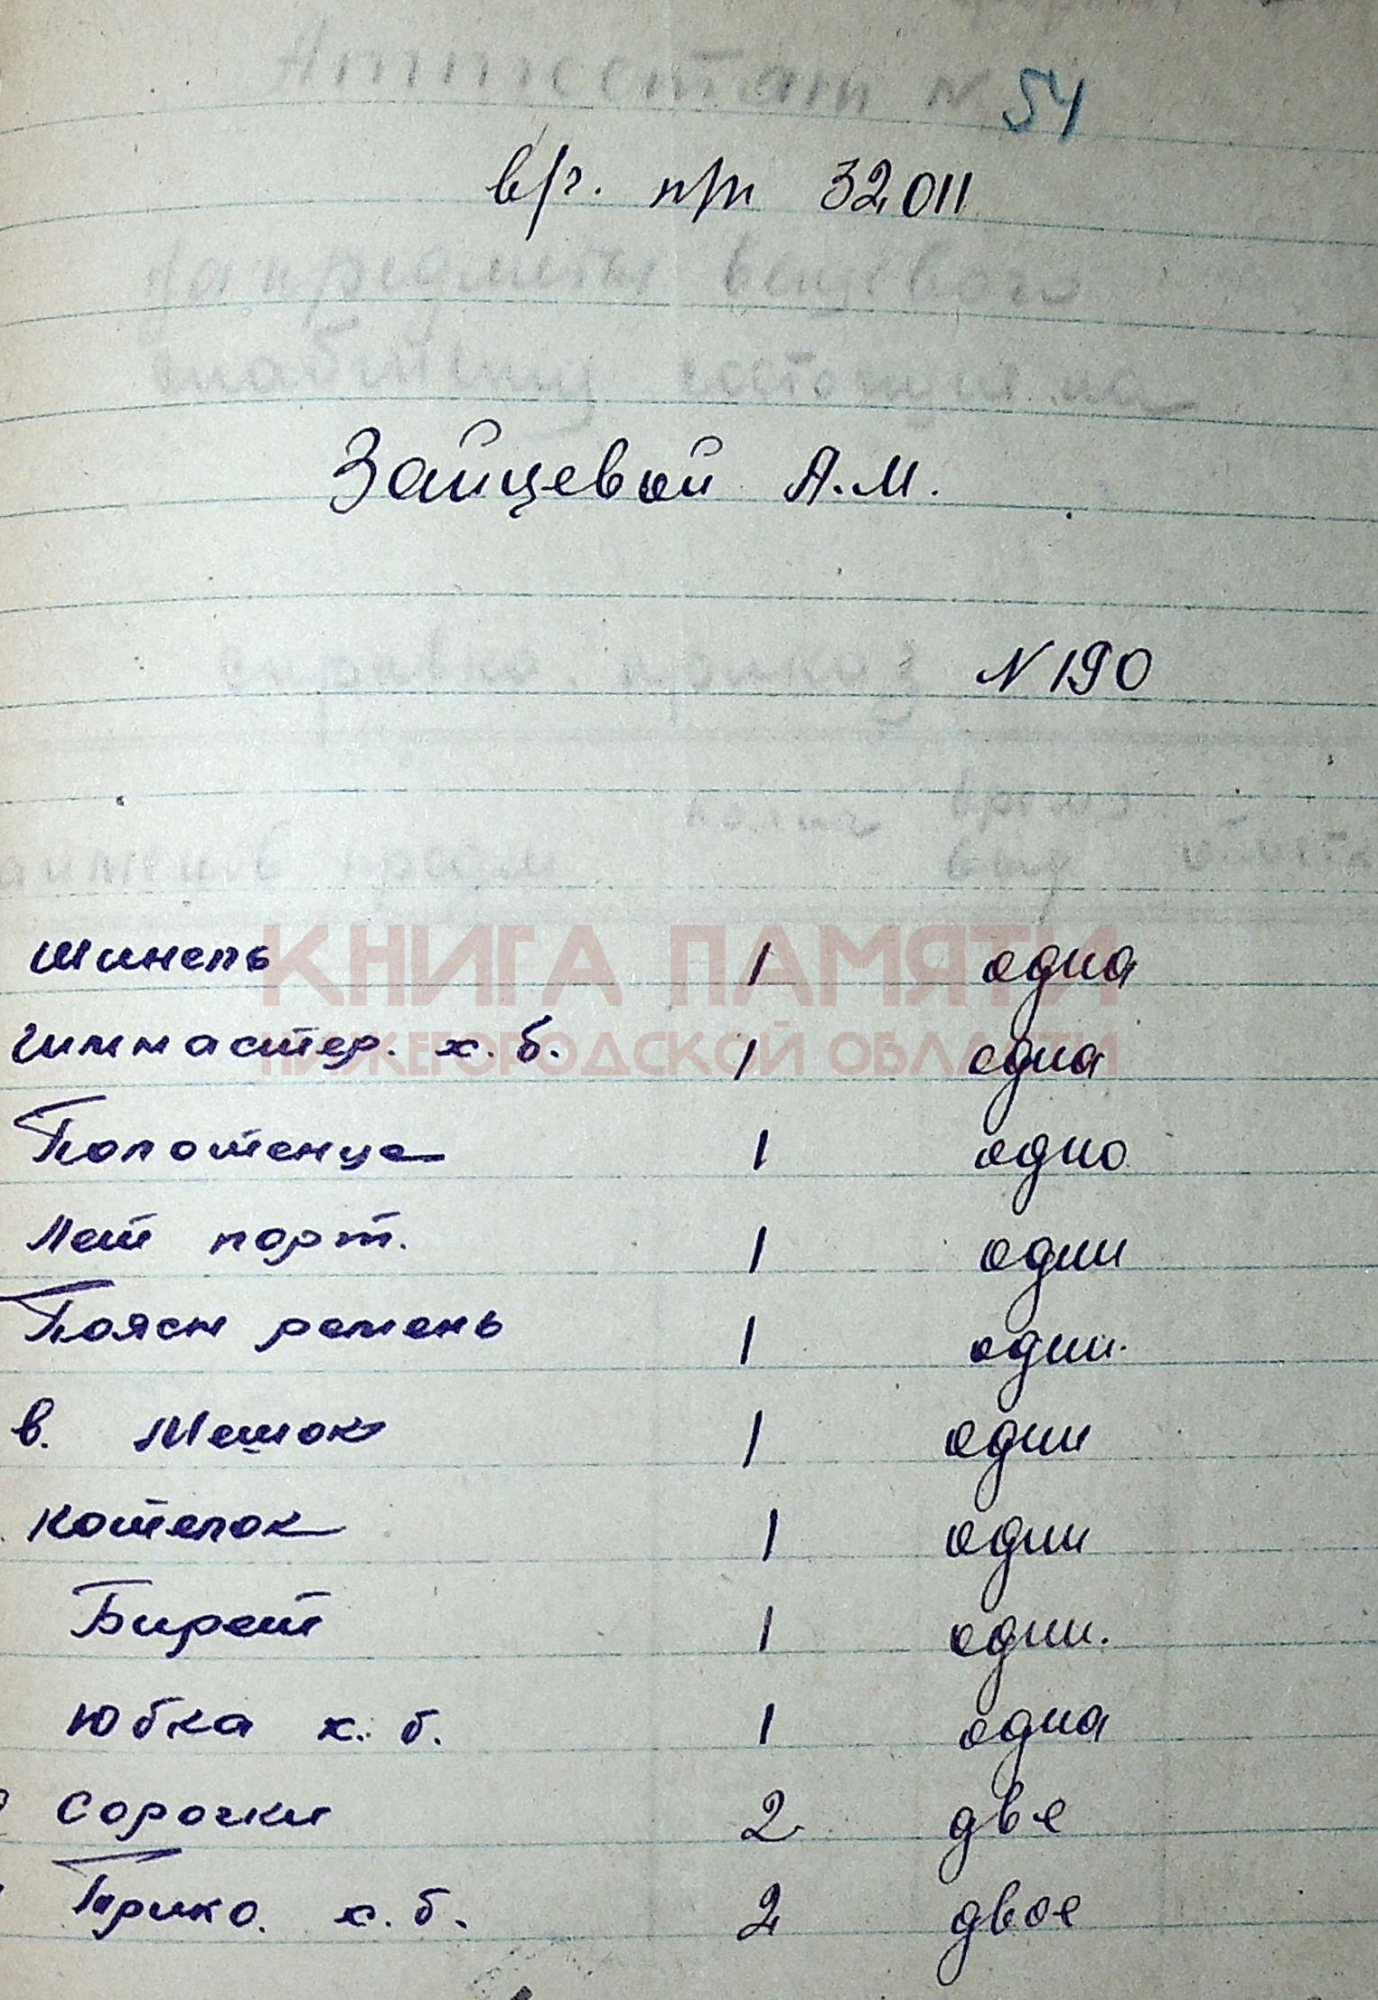 Аттестат N 54
в/г. п/п 32011
на предметы вещевого
Зайцевой А.М.
справка. приказ N 190
колич время
вид
КНИГА ПАМЯТИ
НИЖЕГОРОДСКОЙ ОБЛАСТИ
шинель 1 одна
гимнастер. х.б. 1 одна
Полотенце 1 одно
Лет порт. 1 одни
Поясн ремень 1 один.
в. Мешок 1 один
Котелок 1 один
Бирет 1 один.
Юбка х.б. 1 одна
Сорочки 2 две
Трико. х.б. 2 двое